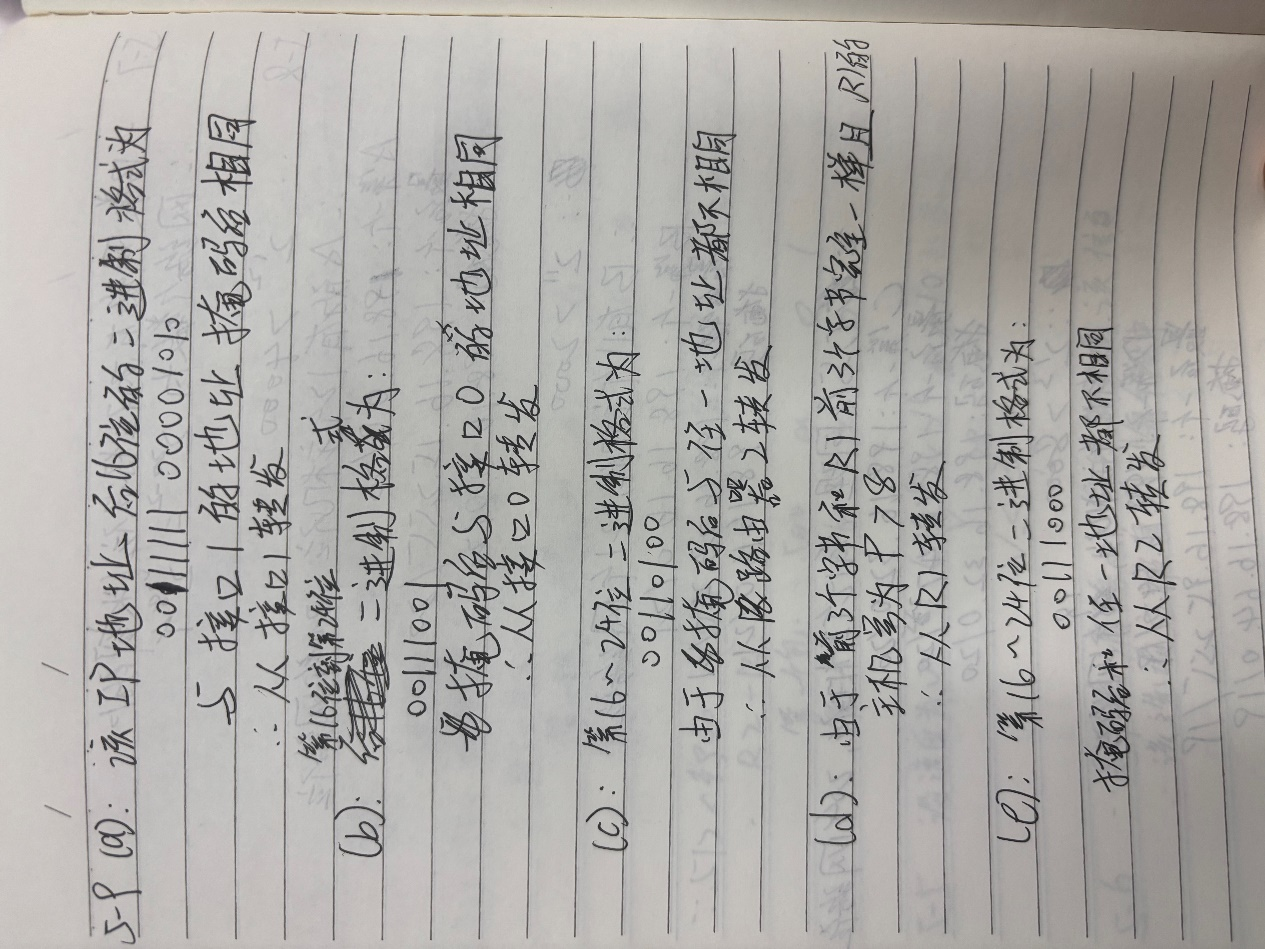 5-9 (a): 该IP地址后16位的二进制格式为
00111111 00001010
与接口1的地址掩码后相同
∴从接口1转发
第16位到第24位
(b): 二进制格式为:
00111001
掩码后与接口0的地址相同
∴从接口0转发
(c): 第16~24位二进制格式为:
00110100
由于掩码后与任一地址都不相同
∴从路由器2转发
(d): 由于前3个字节和R1前3个字节完全一样且R1的
主机号为 >8
∴从R1转发
(e): 第16~24位二进制格式为:
00111000
掩码后和任一地址都不相同
∴从R2转发